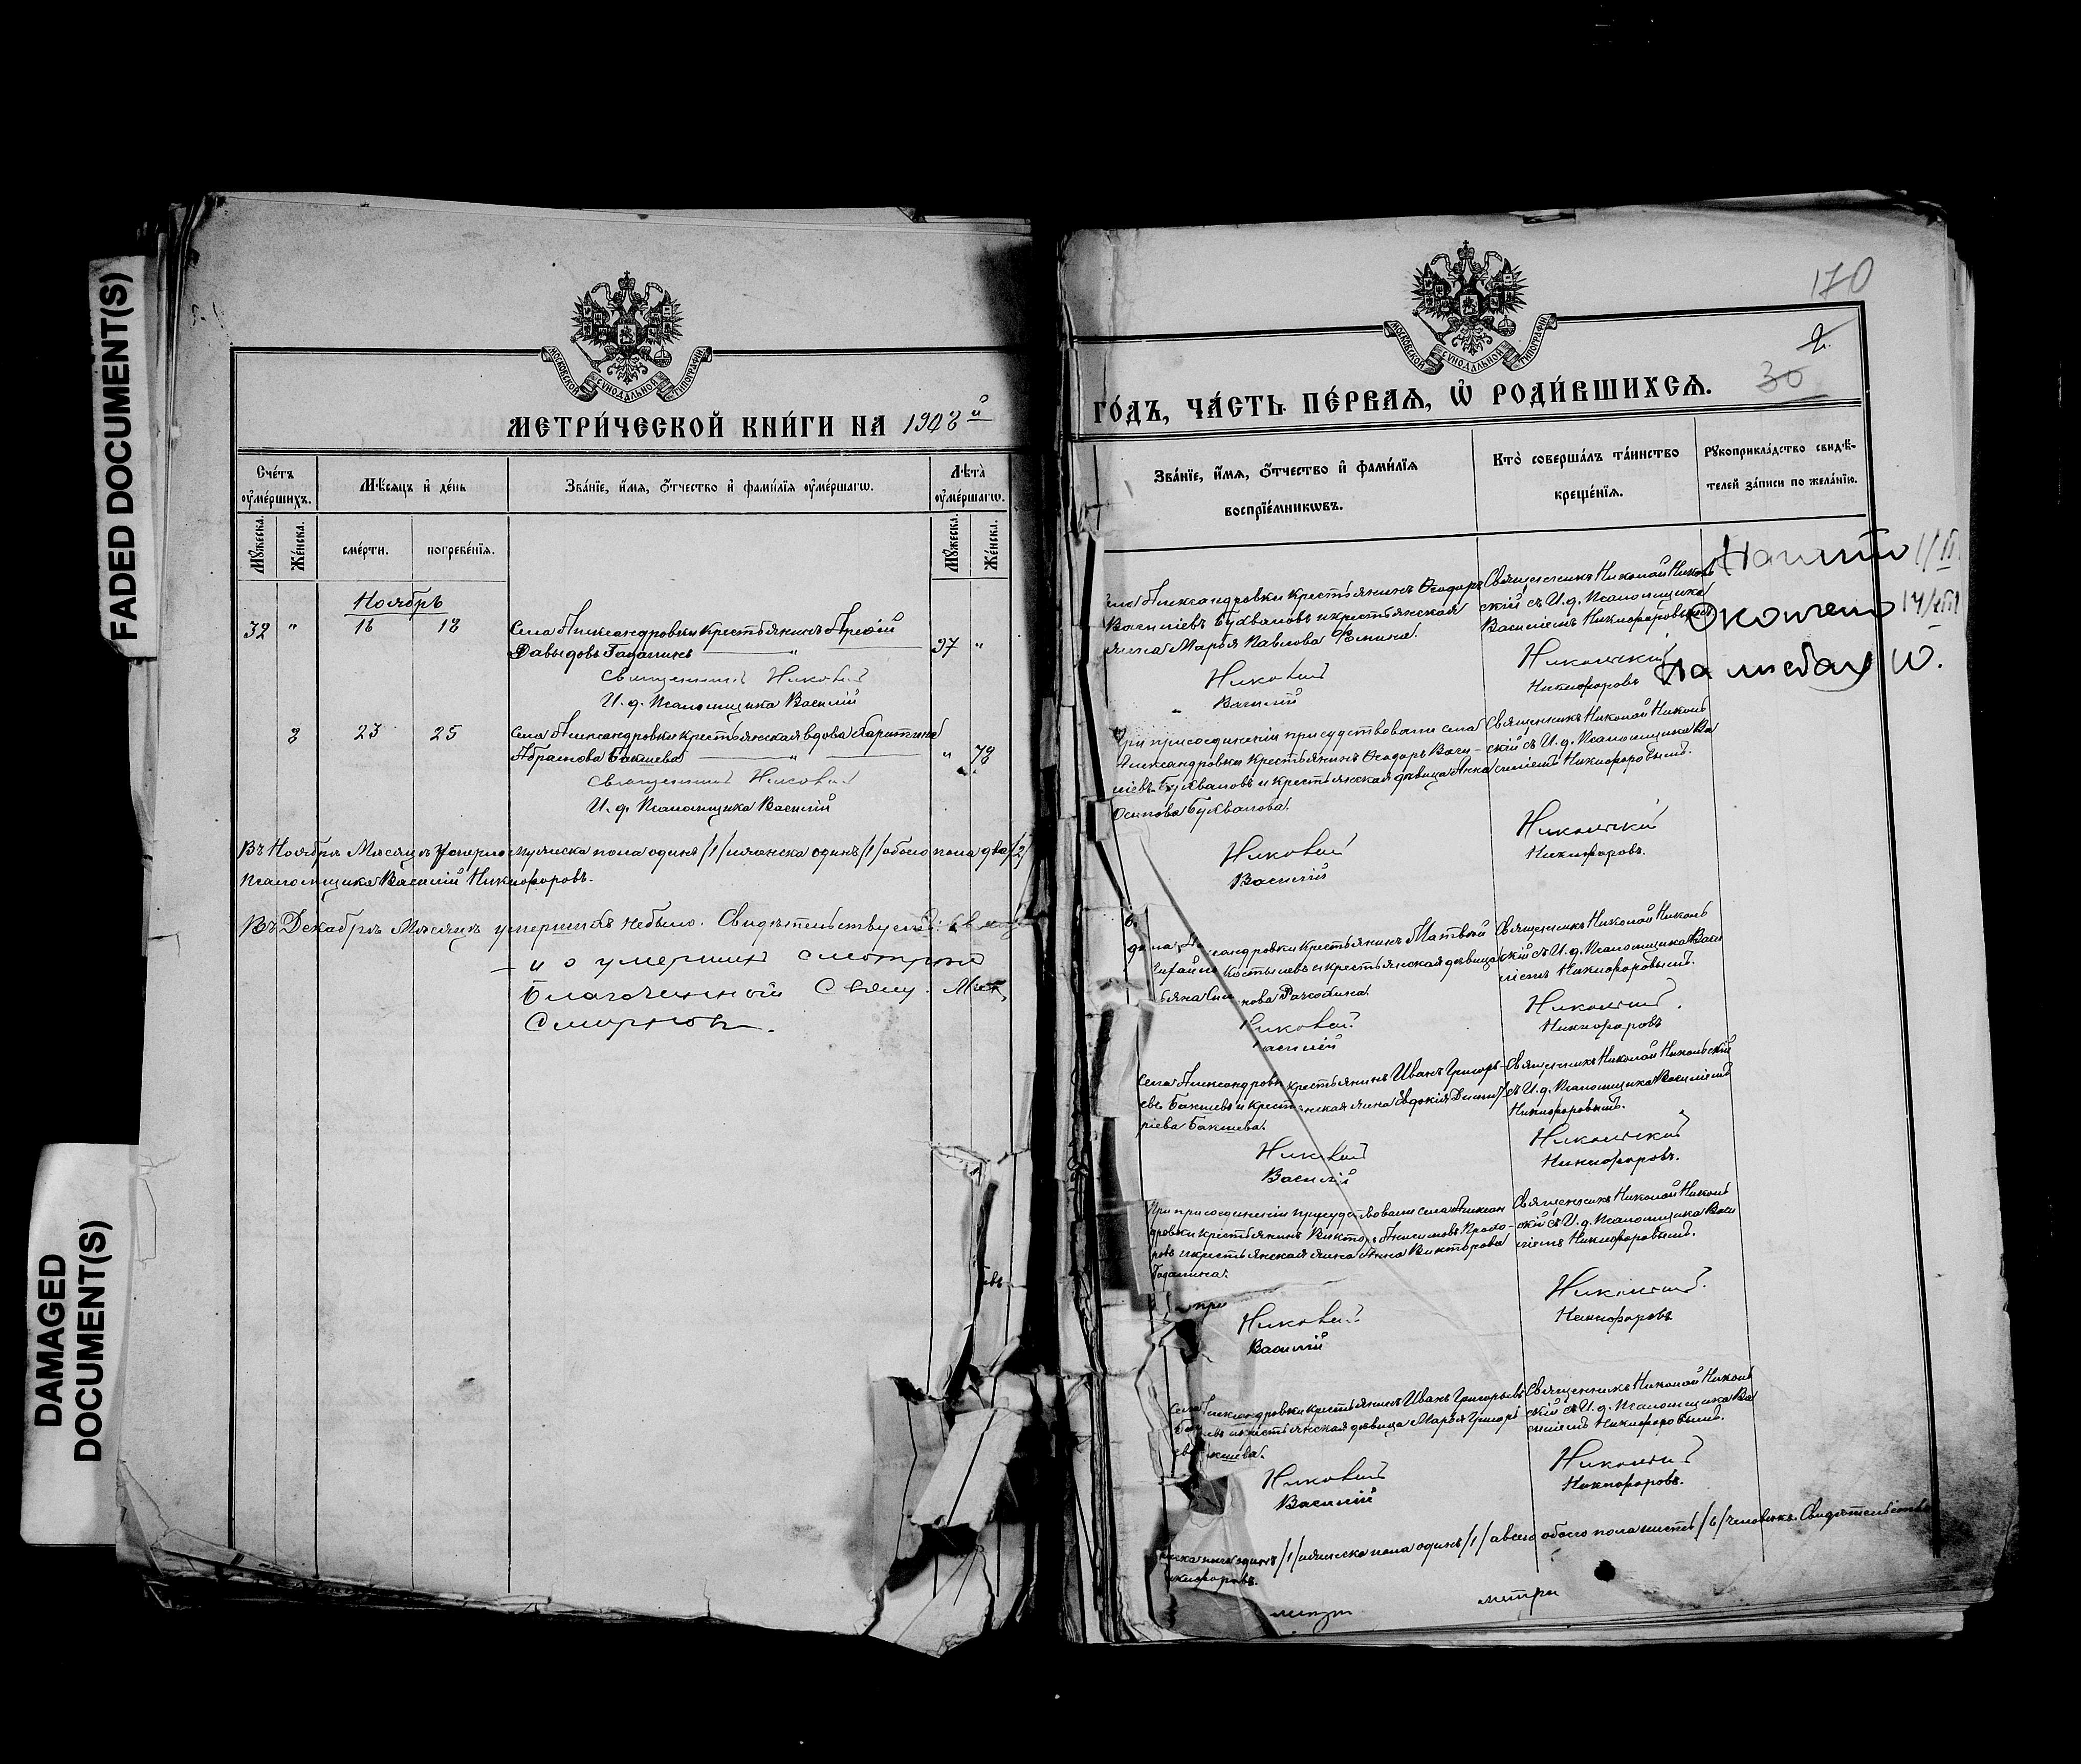 FADED DOCUMENT(S)
DAMAGED
DOCUMENT(S)
МОСКОВСКОЙ СУНОДАЛЬНОЙ ТИПОГРАФІИ
МЕТРИ́ЧЕСКОЙ КНИ́ГИ НА 1908й
Сче́тъ ᲂу҆ме́ршихъ.
Мѣ́сѧцъ и҆ де́нь
Зва́нїе, и҆́мѧ, ѻ҆́тчество и҆ фами́лїѧ ᲂу҆ме́ршагѡ.
Лѣ́та ᲂу҆ме́ршагѡ.
Мꙋ́жеска.
Же́нска.
сме́рти.
погребе́нїѧ.
Мꙋ́жеска.
Же́нска.
Ноябрь
32 " 16 18 Села Александровки крестьянинъ
Давыдовъ Гадалинъ " 37 "
Священникъ Николай
И. д. Псаломщика Василій
8 23 25 Села Александровки крестьянская вдова Харитина
Абрамова Бакшева " " 78
Священникъ Николай
И. д. Псаломщика Василій
Въ Ноябрѣ Мѣсяцѣ умерло мужеска пола одинъ /1/ женска одинъ /1/ обоего пола два /2/
Псаломщика Василій Никифоровъ.
Въ Декабрѣ Мѣсяцѣ умершихъ небыло. Свидѣтельствуемъ:
и о умершихъ смотрѣлъ
Благочинный Свящ.
Смирновъ.
МОСКОВСКОЙ СУНОДАЛЬНОЙ ТИПОГРАФІИ
170
2.
30
ГО́ДЪ, ЧА́СТЬ ПЕ́РВАѦ, Ѡ҆ РОДИ́ВШИХСѦ.
Зва́нїе, и҆́мѧ, ѻ҆́тчество и҆ фами́лїѧ воспрїе́мникѡвъ.
Кто̀ соверша́лъ та́инство креще́нїѧ.
Рꙋкоприкла́дство свидѣ́телей за́писи по жела́нїю.
Начато
Окончено
Села Александровки крестьянинъ Ѳеодоръ
Васильевъ Букваловъ и крестьянская
жена Марья Павлова
Николай
Василій
Священникъ Николай Николь
скій съ И. д. Псаломщика
Василіемъ Никифоровымъ.
Никольскій
Никифоровъ
При присоединеніи присудствовали села
Александровки крестьянинъ Ѳеодоръ Васи-
льевъ Букваловъ и крестьянская дѣвица Анна
Осипова Буквалова.
Николай
Василій
Священникъ Николай Николь
скій съ И. д. Псаломщика Ва
силіемъ Никифоровымъ.
Никольскій
Никифоровъ.
крестьянинъ Матвѣй
Костылевъ и крестьянская дѣвица
Николай
Священникъ Николай Николь
скій съ И. д. Псаломщика Васи
ліемъ Никифоровымъ.
Никольскій.
Никифоровъ
Села Александровки крестьянинъ Иванъ Григорь-
евъ Бакшевъ и крестьянская жена Евдокія Димит
ріева Бакшева.
Николай
Василій
Священникъ Николай Никольскій
съ И. д. Псаломщика Василіемъ
Никифоровымъ.
Никольскій
Никифоровъ.
При присоединеніи присудствовали села Алексан
дровки крестьянинъ Викторъ Анисимовъ Прохо-
ровъ и крестьянская жена Анна Викторова
Гадалина.
Николай
Василій
Священникъ Николай Николь
скій съ И. д. Псаломщика Васи
ліемъ Никифоровымъ.
Никольскій.
Никифоровъ
Села Александровки крестьянинъ Иванъ Григорьевъ
и крестьянская дѣвица Марья Григорь
Николай
Василій
Священникъ Николай Николь
скій съ И. д. Псаломщика Ва
силіемъ Никифоровымъ.
Никольскій
Никифоровъ.
одинъ /1/ женска пола одинъ /1/ а всего обоего пола шесть /6/ человѣкъ. Свидѣтельству
метри